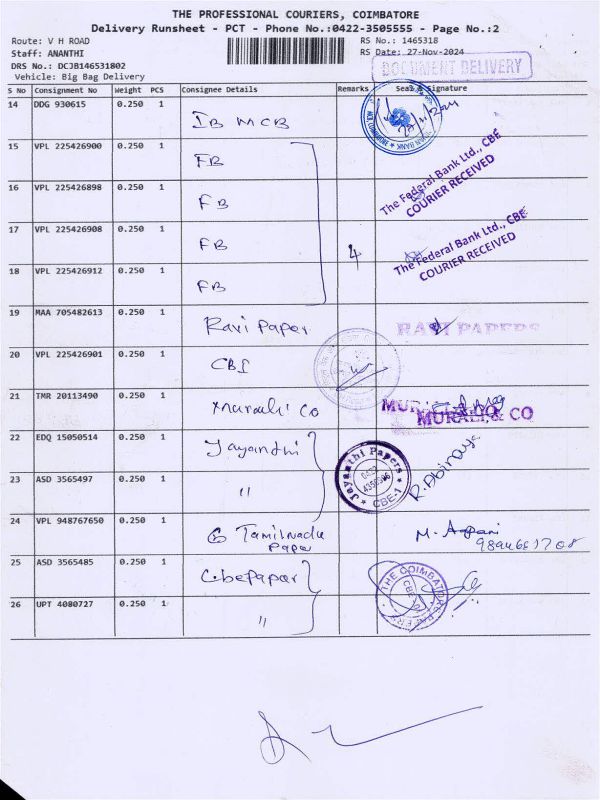 THE PROFESSIONAL COURIERS, COIMBATORE
Delivery Runsheet - PCT - Phone No.:0422-3505555 - Page No.:2
Route: V H ROAD
RS No.: 1465318
Staff: ANANTHI
RS Date: 27-Nov-2024
DRS No.: DCJB146531802
Vehicle: Big Bag Delivery
DOCUMENT DELIVERY
S No Consignment No Weight PCS Consignee Details Remarks Seal & Signature
14 DDG 930615 0.250 1 IB MCB
15 VPL 225426900 0.250 1 FB
The Federal Bank Ltd., CBE
COURIER RECEIVED
16 VPL 225426898 0.250 1 FB
17 VPL 225426908 0.250 1 FB 4
The Federal Bank Ltd., CBE
COURIER RECEIVED
18 VPL 225426912 0.250 1 FB
19 MAA 705482613 0.250 1 Ravi Paper RAVI PAPERS
20 VPL 225426901 0.250 1 CBI
21 TMR 20113490 0.250 1 Murali Co
MURALI & CO
22 EDQ 15050514 0.250 1 Jayanthi
Jayanthi Papers
0422
CBE-1
R. Abinaya
23 ASD 3565497 0.250 1 "
24 VPL 948767650 0.250 1 Tamilnadu
Paper
M.
25 ASD 3565485 0.250 1 Cbe Paper
THE COIMBATORE PAPERS
CBE
26 UPT 4080727 0.250 1 "